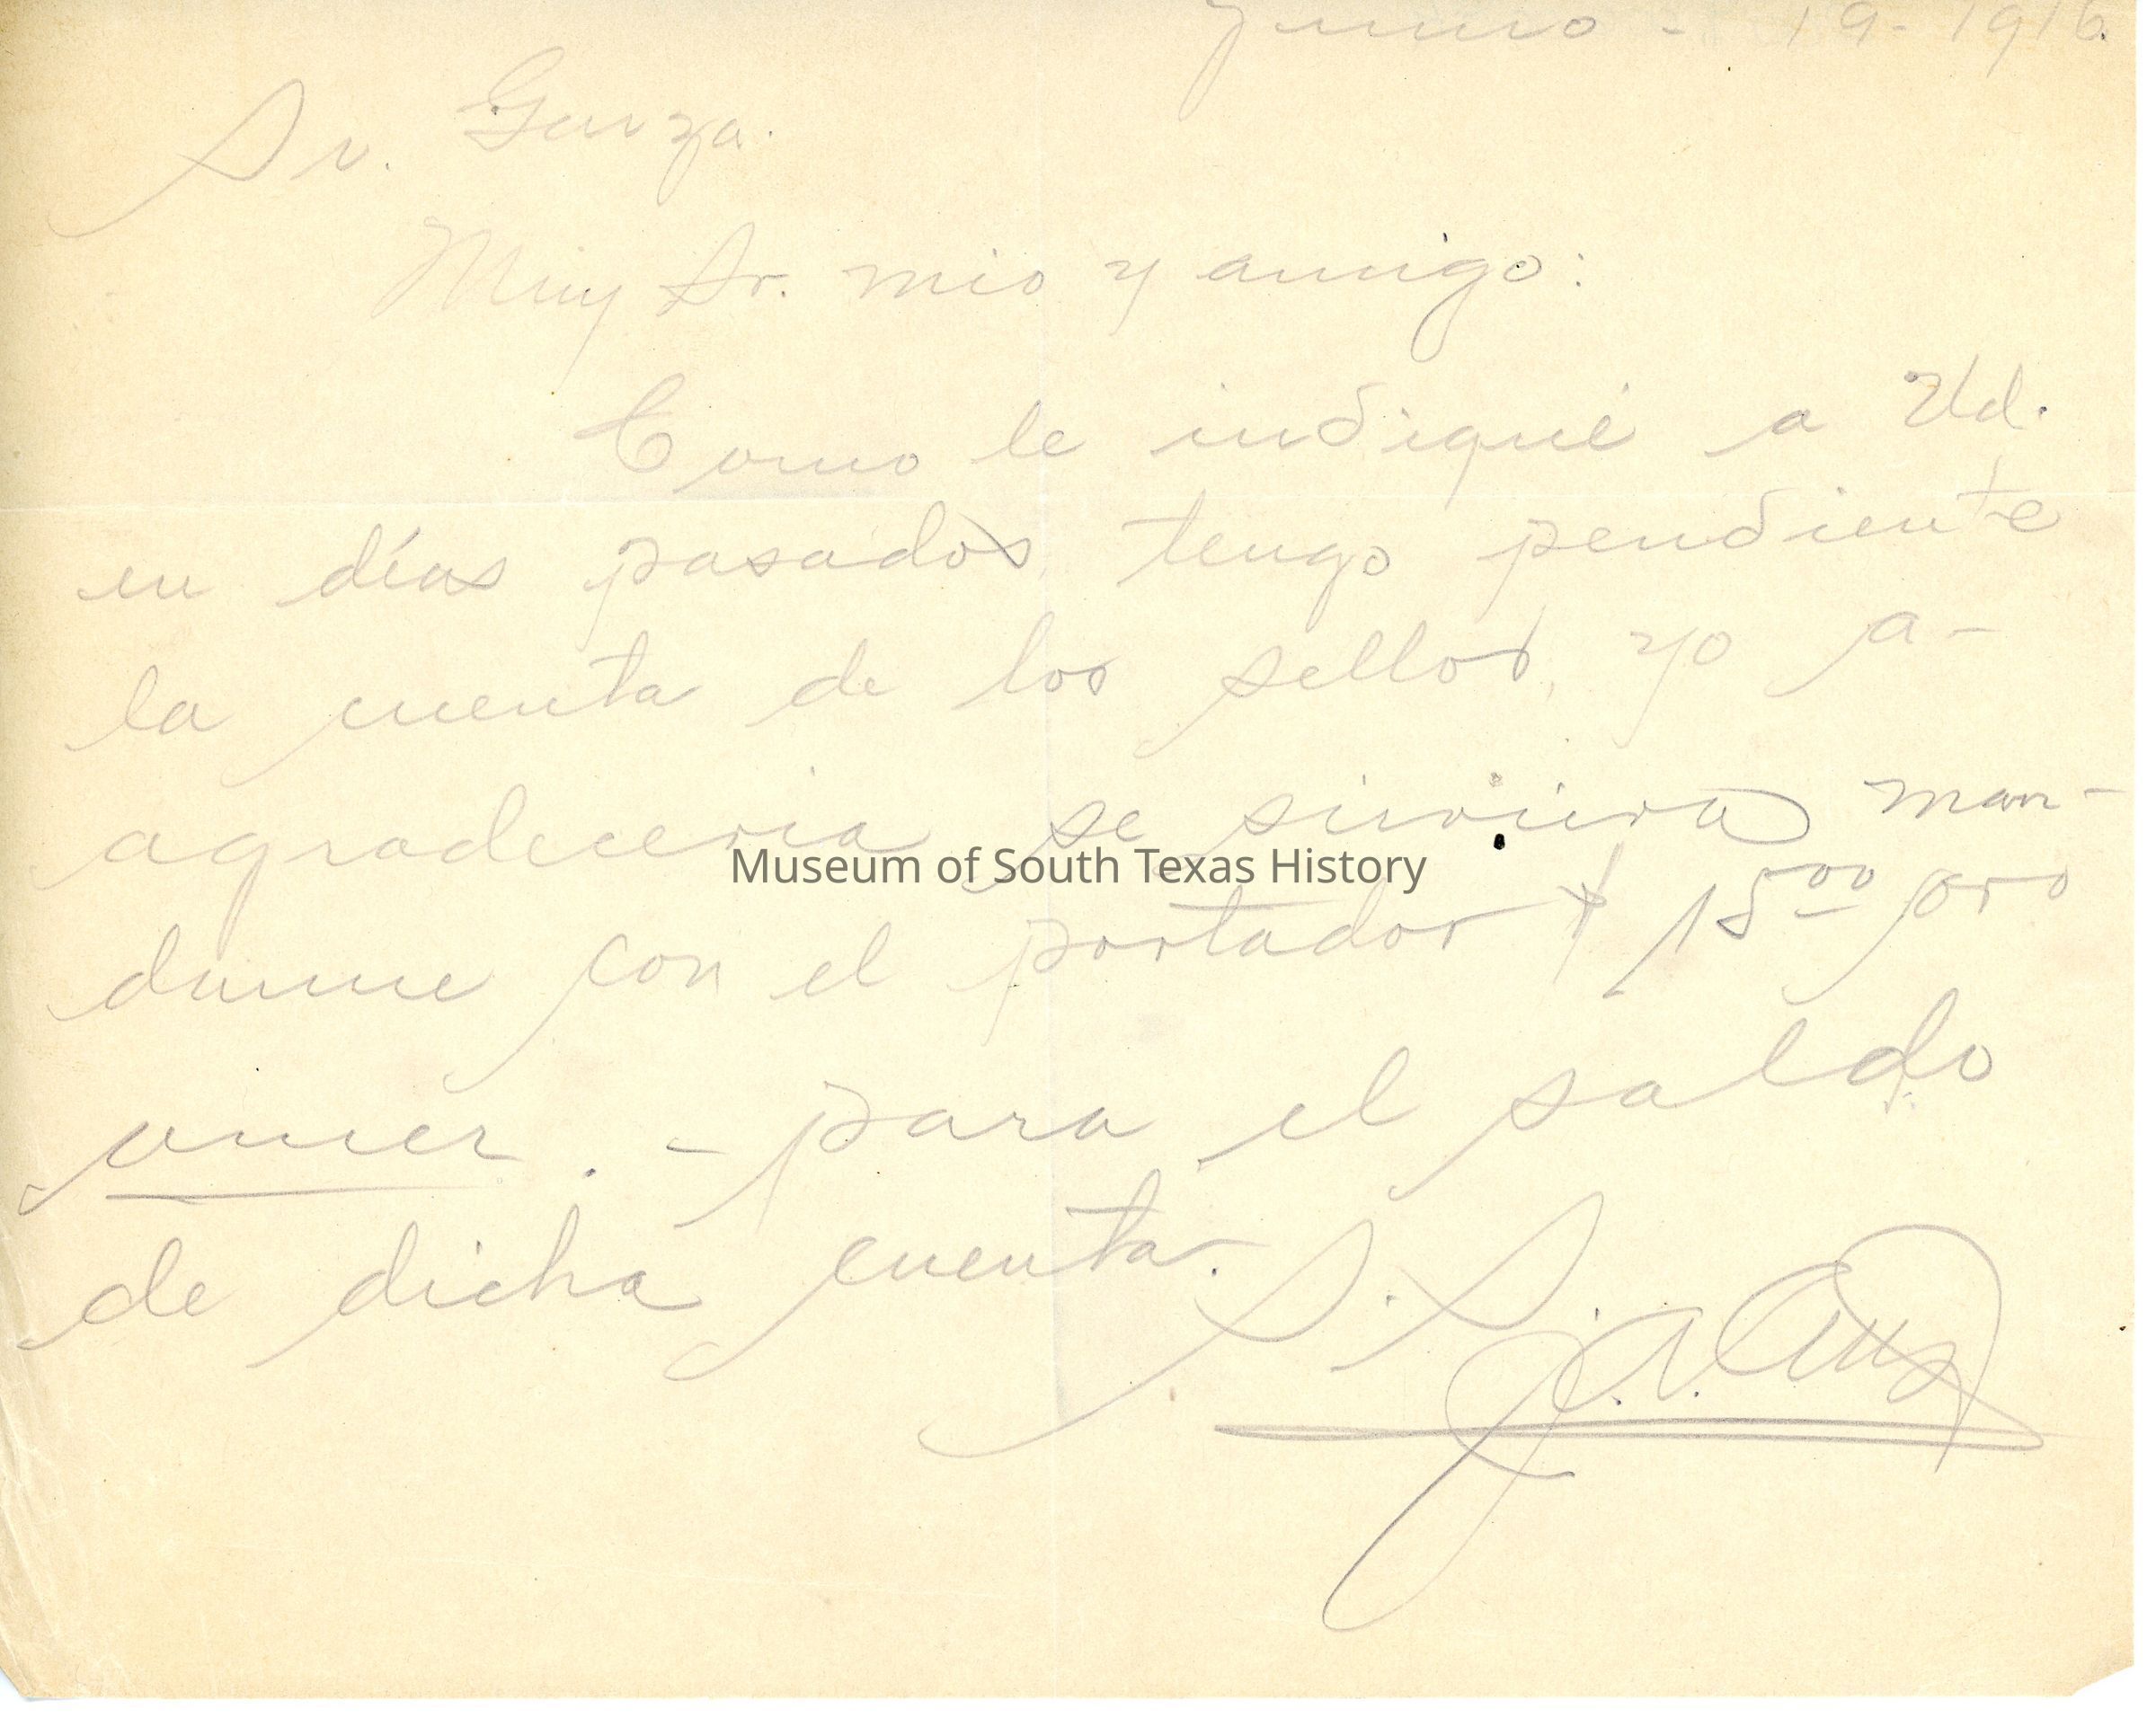 19-1916.
Sr. Garza.
Muy Sr. mio y amigo:
Como le indiqué a Ud.
en días pasados, tengo pendiente
la cuenta de los sellos, yo a-
agradeceria se sirviera man-
Museum of South Texas History
darme con el portador $ 15 00 oro
amer. - para el saldo
de dicha cuenta.
S. S.